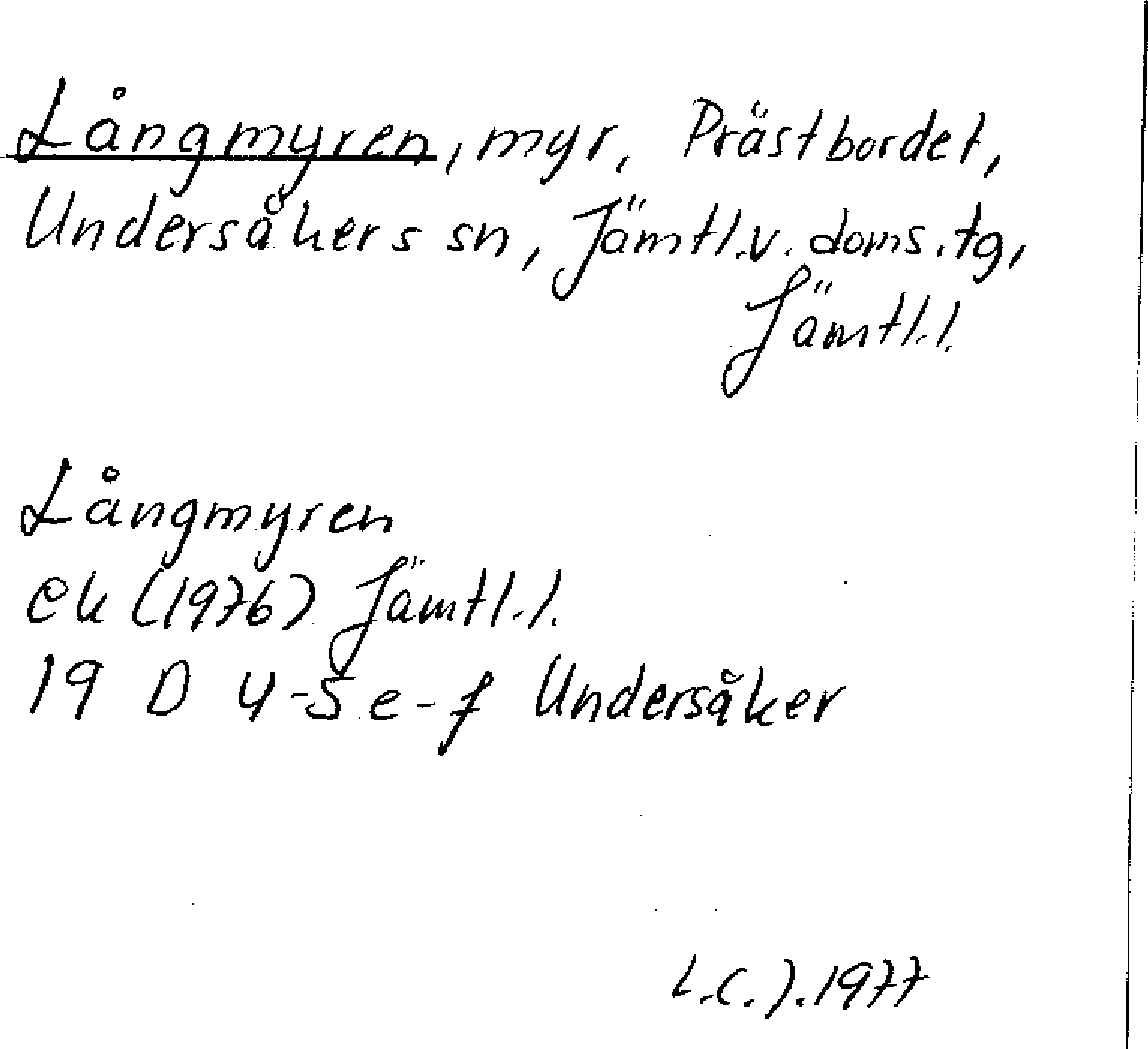 Långmyren, myr, Prästbordet,
Undersåkers sn, Jämtl.v. doms.tg,
Jämtl.l.
Långmyren
ek (1976) Jämtl.l.
19 D 4-5 e-f Undersåker
L.C.J.1977